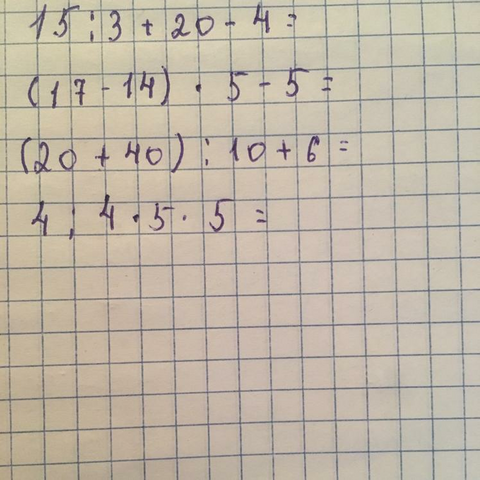 15 : 3 + 20 - 4 =
(17 - 14) · 5 - 5 =
(20 + 40) : 10 + 6 =
4 : 4 · 5 · 5 =